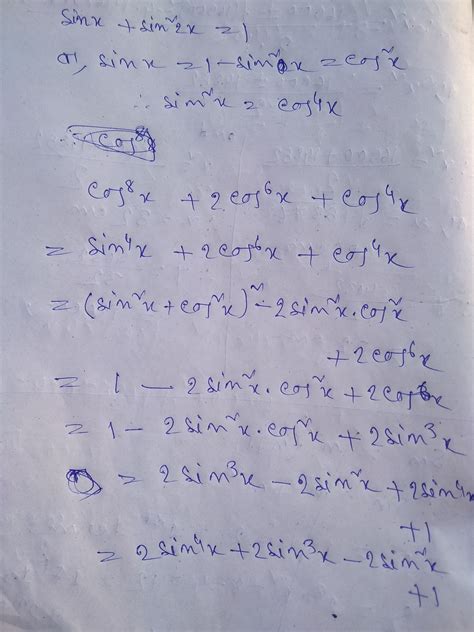 sinx + sin²2x = 1
or, sinx = 1 - sin²x = cos²x
∴ sin²x = cos⁴x
cos⁸x + 2cos⁶x + cos⁴x
= sin⁴x + 2cos⁶x + cos⁴x
= (sin²x + cos²x)² - 2sin²x.cos²x
+ 2cos⁶x
= 1 - 2sin²x.cos²x + 2cos⁶x
= 1 - 2sin²x.cos²x + 2sin³x
= 2sin³x - 2sin²x + 2sin⁴x
+1
= 2sin⁴x + 2sin³x - 2sin²x
+1